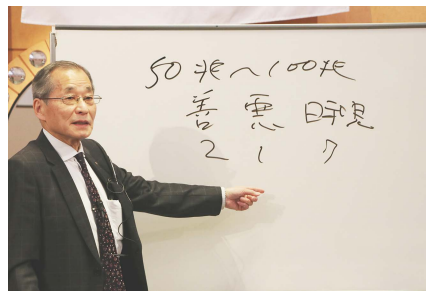 50兆～100兆
善 悪 日和見
2 1 7